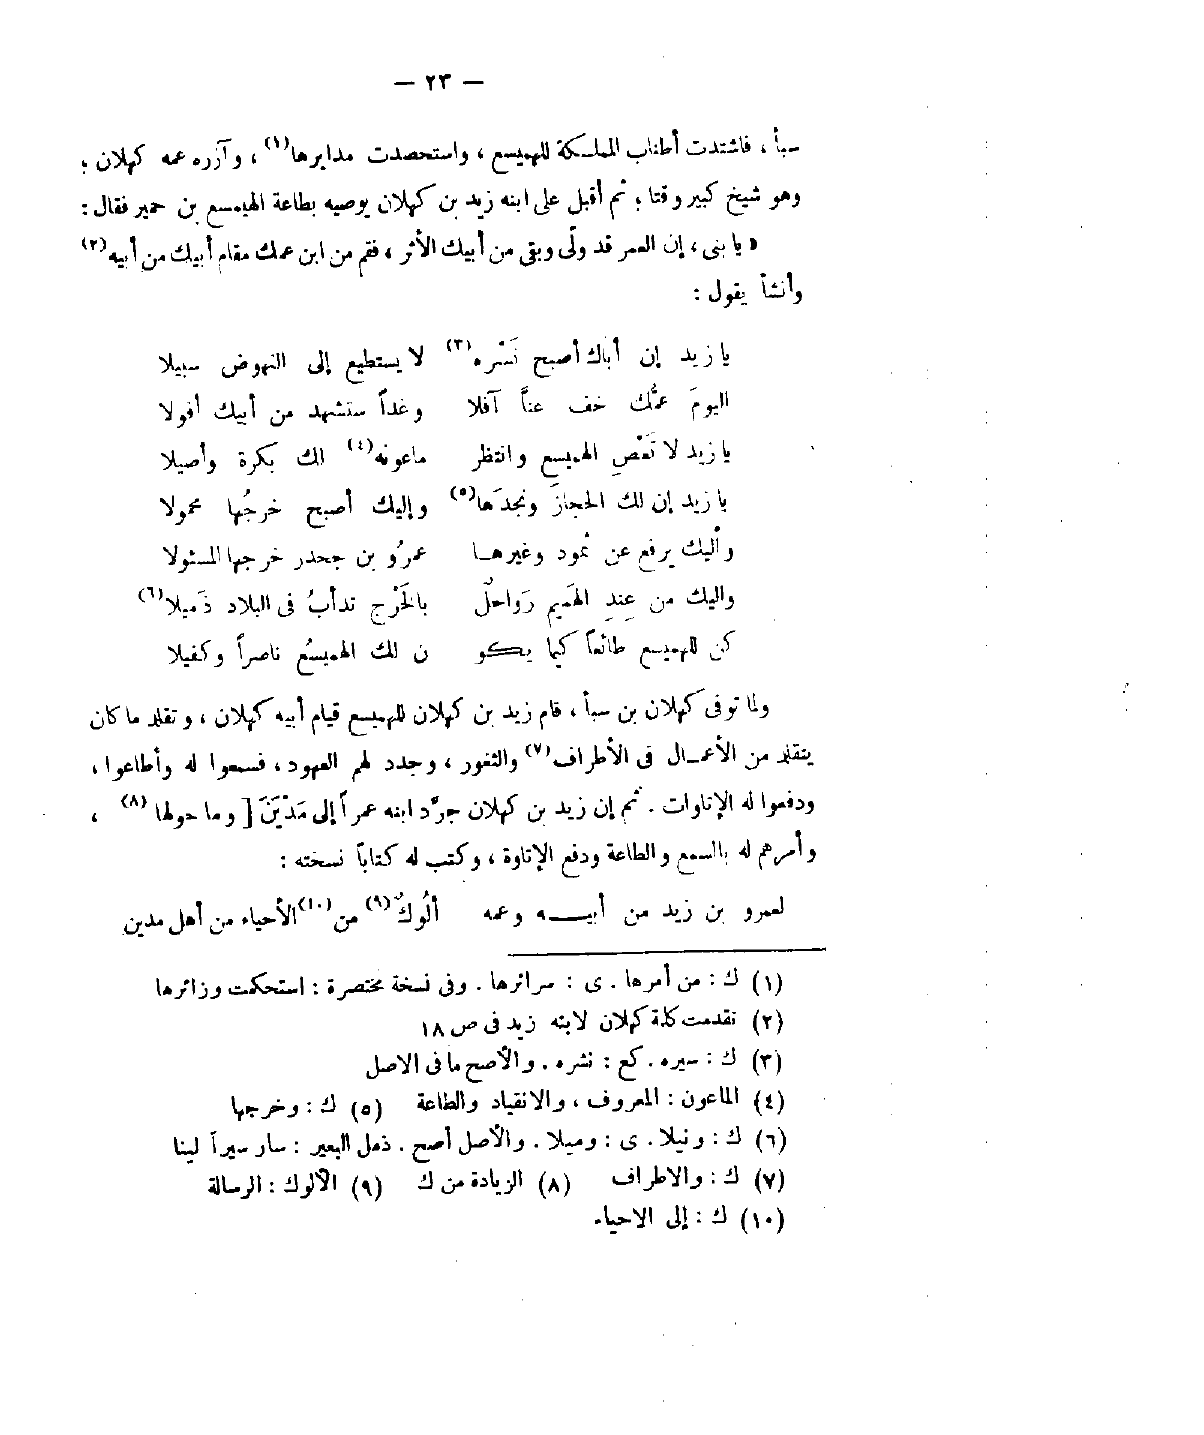 — ٢٣ —
سبأ ، فاشتدت أطناب المملكة للهميسع ، واستحصدت مدايرها(١) ، وآزره عمه كهلان ؛
وهو شيخ كبير وقتا ؛ ثم أقبل على ابنه زيد بن كهلان يوصيه بطاعة الهميسع بن حمير فقال :
« يا بنى ، إن العمر قد ولّى وبقى من أبيك الأثر ، فقم من ابن عمك مقام أبيك من أبيه(٢)
وأنشأ يقول :
يا زيد إن أباك أصبح نَسْره(٣) لا يستطيع إلى النهوض سبيلا
اليومَ عمُّك خف عنّا آفلا وغداً ستشهد من أبيك أفولا
يا زيد لا تَعْصِ الهميسع وانتظر ماعونه(٤) لك بكرة وأصيلا
يا زيد إن لك الحجازَ ونجدَها(٥) وإليك أصبح خرجُها محمولا
وأليك يرفع عن ثمود وغيرها عمرُو بن جحدر خرجها المسئولا
واليك من عِندِ الهَميم رَواحلٌ بالخَرْج تدأبُ فى البلاد ذَميلا(٦)
كن للهميسع طائعاً كيما يكو ن لك الهميسُع ناصراً وكفيلا
ولما توفى كهلان بن سبأ ، قام زيد بن كهلان للهميسع قيام أبيه كهلان ، وتقلد ما كان
يتقلد من الأعمال فى الأطراف(٧) والثغور ، وجدد لهم العهود ، فسمعوا له وأطاعوا ،
ودفعوا له الإتاوات . ثم إن زيد بن كهلان جرّد ابنه عمراً إلى مَدْيَنَ [ وما حولها (٨) ،
وأمرهم له بالسمع والطاعة ودفع الإتاوة ، وكتب له كتاباً نسخته :
لعمرو بن زيد من أبيه وعمه ألُوكٌ(٩) من(١٠) الأحياء من أهل مدين
(١) ك : من أمرها . ى : سرائرها . وفى نسخة مختصرة : استحكمت وزائرها
(٢) تقدمت كلمة كهلان لابنه زيد فى ص ١٨
(٣) ك : سيره . كع : نشره . والأصح ما فى الاصل
(٤) الماعون : المعروف ، والانقياد والطاعة (٥) ك : وخرجها
(٦) ك : ونيلا . ى : وميلا . والأصل أصح . ذمل البعير : سار سيراً لينا
(٧) ك : والاطراف (٨) الزيادة من ك (٩) الألوك : الرسالة
(١٠) ك : إلى الاحياء